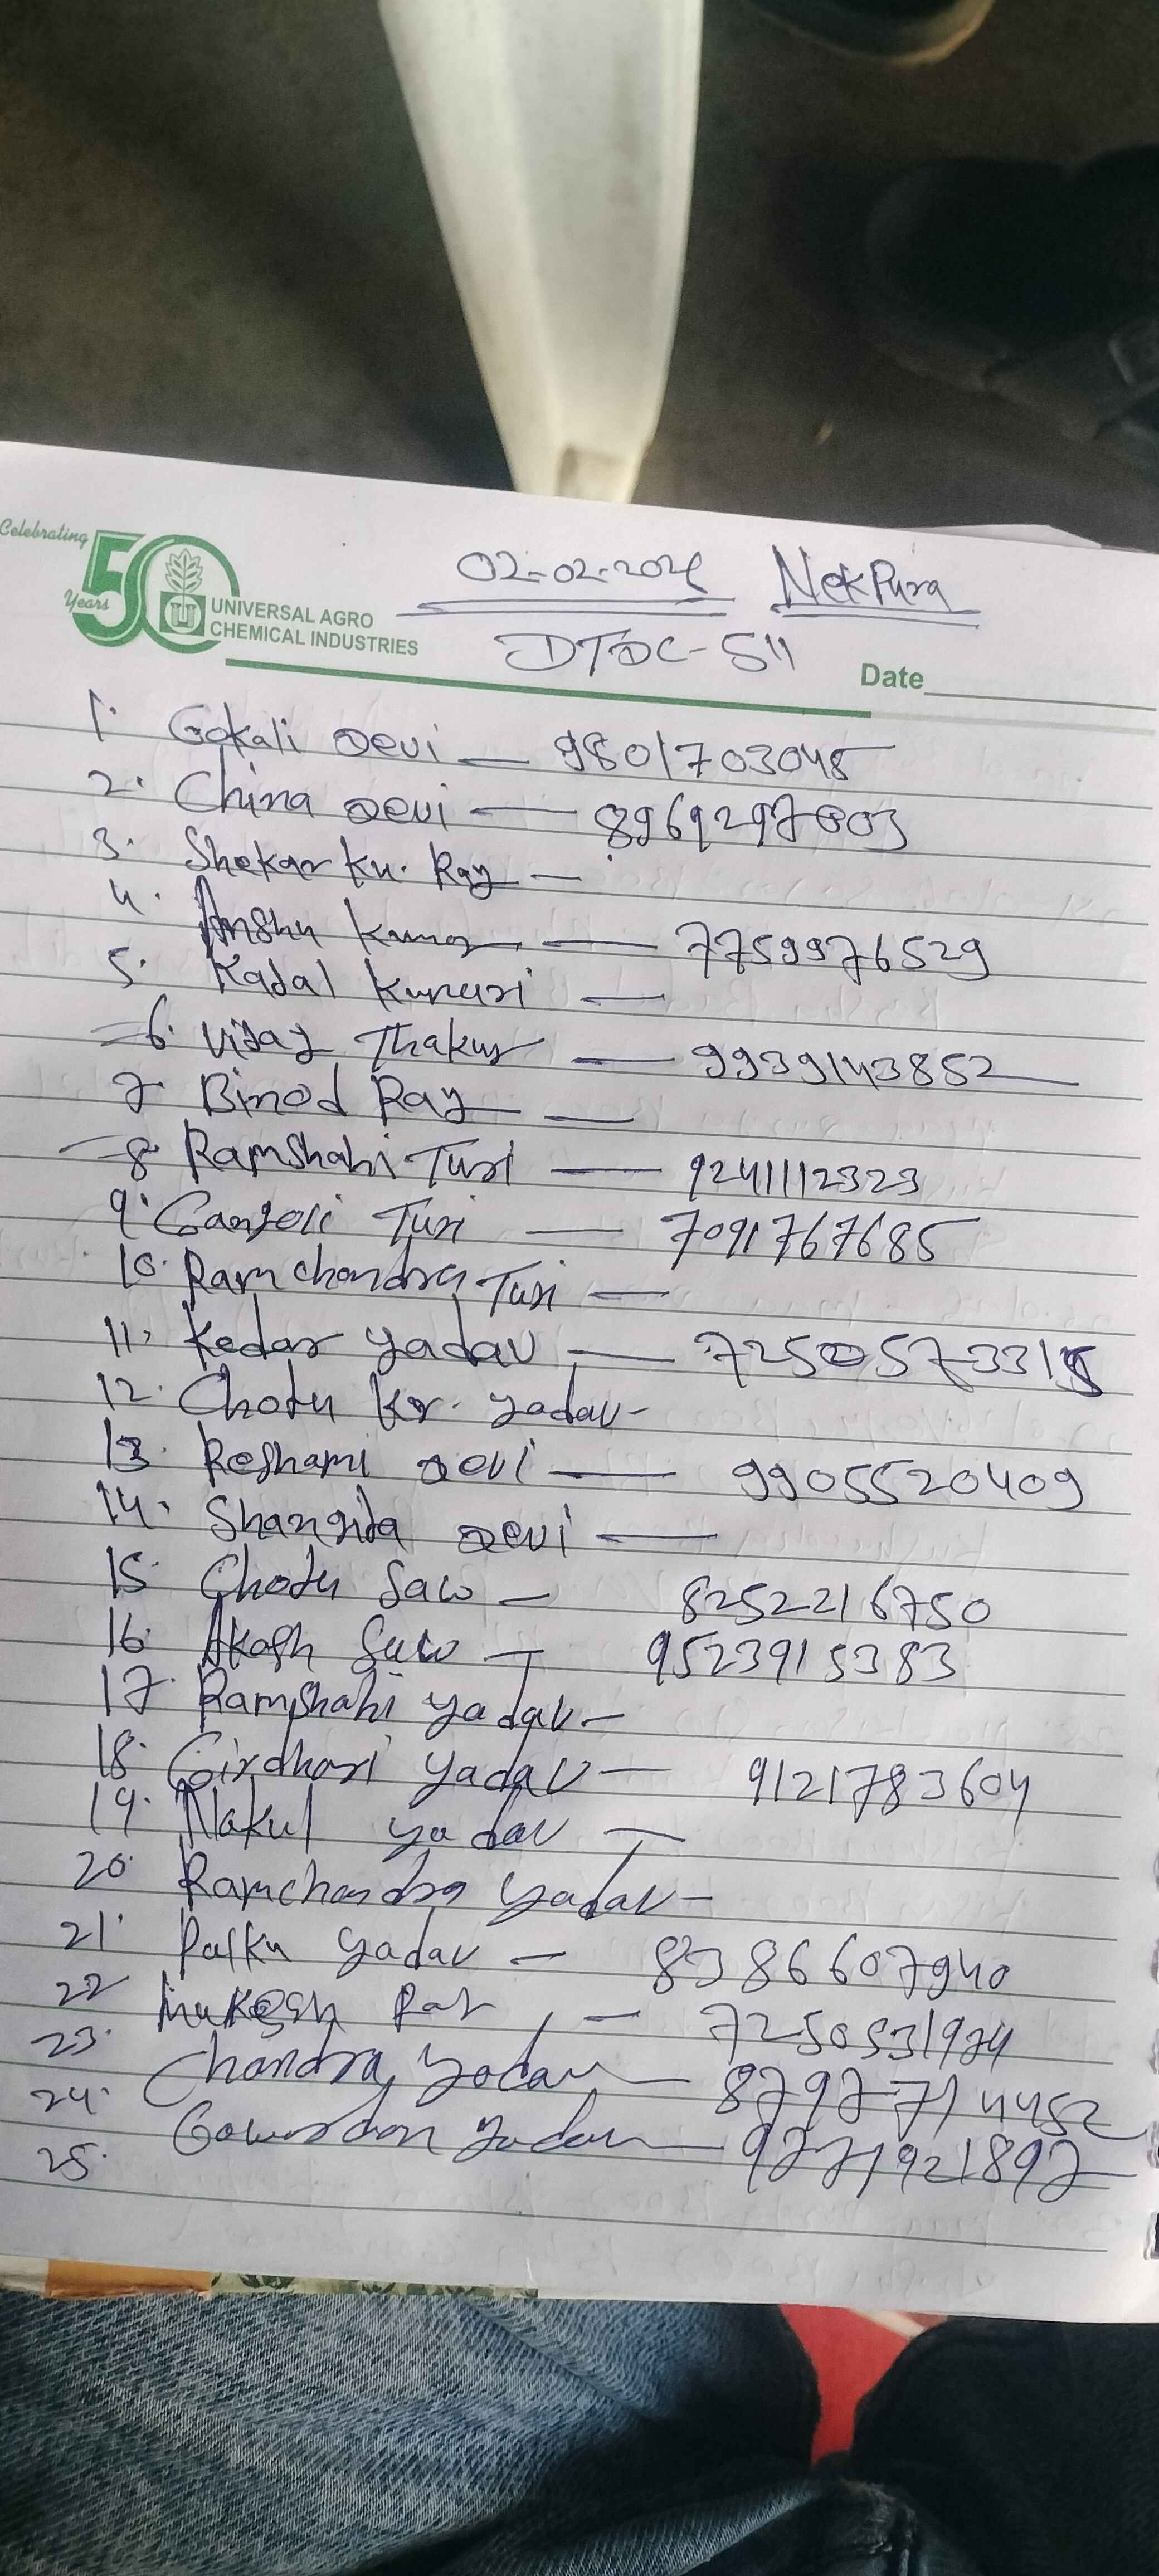 Celebrating
50
Years
UNIVERSAL AGRO
CHEMICAL INDUSTRIES
02-02-202 Nekpura
DTDC-511
Date
1. Gokali Devi — 9801703045
2. China Devi — 8969297803
3. Shekar Ku. Ray —
4. Anshu Kumar — 7759976529
5. Kajal Kumari —
6. Vijay Thakur — 9939143852
7. Binod Ray —
8. Ramshahi Turi — 9241112323
9. Turi — 7091767685
10. Ramchandra Turi —
11. Kedar Yadav — 
12. Chotu Kr. Yadav -
13. Reshami Devi — 9905520409
14. Devi —
15. Chotu Saw — 8252216750
16. Akash Saw — 9523915383
17. Ramshahi Yadav -
18. Girdhari Yadav — 9121783604
19. Nakul Yadav —
20. Ramchandra Yadav -
21. Yadav — 8386607940
22. Mukesh — 
23. Chandra Yadav — 8797714452
24. Yadav — 9771921897
25.